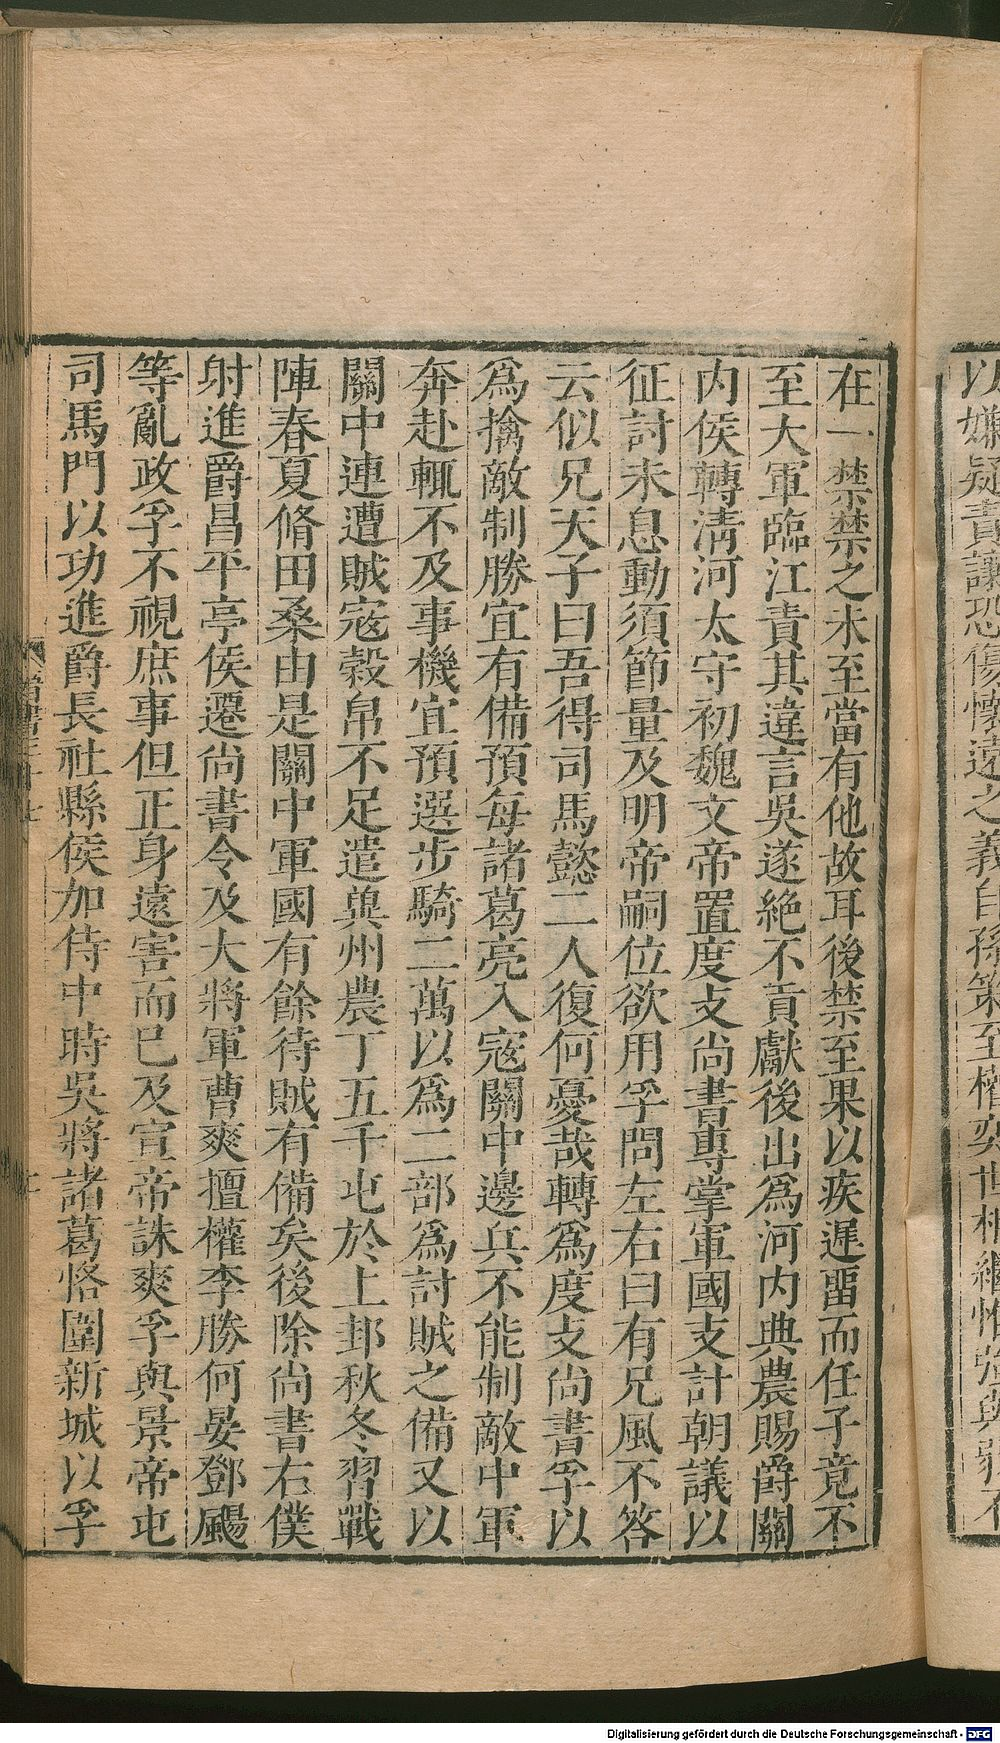 以嫌疑責讓恐傷懷遠之義自孫策至權奕世相繼惟強與弱不
在一禁禁之未至當有他故耳後禁至果以疾遲畱而任子竟不
至大軍臨江責其違言吳遂絶不貢獻後出爲河内典農賜爵關
内侯轉清河太守初魏文帝置度支尚書專掌軍國支計朝議以
征討未息動須節量及明帝嗣位欲用孚問左右曰有兄風不答
云似兄天子曰吾得司馬懿二人復何憂哉轉爲度支尚書孚以
爲擒敵制勝宜有備預每諸葛亮入寇關中邊兵不能制敵中軍
奔赴輒不及事機宜預選步騎二萬以爲二部爲討賊之備又以
關中連遭賊寇穀帛不足遣兾州農丁五千屯於上邽秋冬習戰
陣春夏脩田桑由是關中軍國有餘待賊有備矣後除尚書右僕
射進爵昌平亭侯遷尚書令及大將軍曹爽擅權李勝何晏鄧颺
等亂政孚不視庶事但正身遠害而已及宣帝誅爽孚與景帝屯
司馬門以功進爵長社縣侯加侍中時吳將諸葛恪圍新城以孚
Digitalisierung gefördert durch die Deutsche Forschungsgemeinschaft - DFG